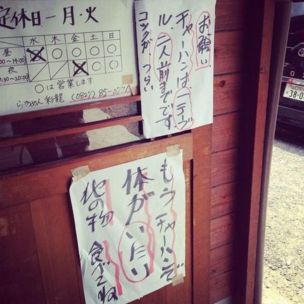 定休日 ー 月・火
水 木 金 土 日
昼
夜
○は営業します
お願い
チャーハンは1テーブ
ル、二人前までです
コックが、つらい
もうチャーハンで
体がいたい
他の物 食べてね